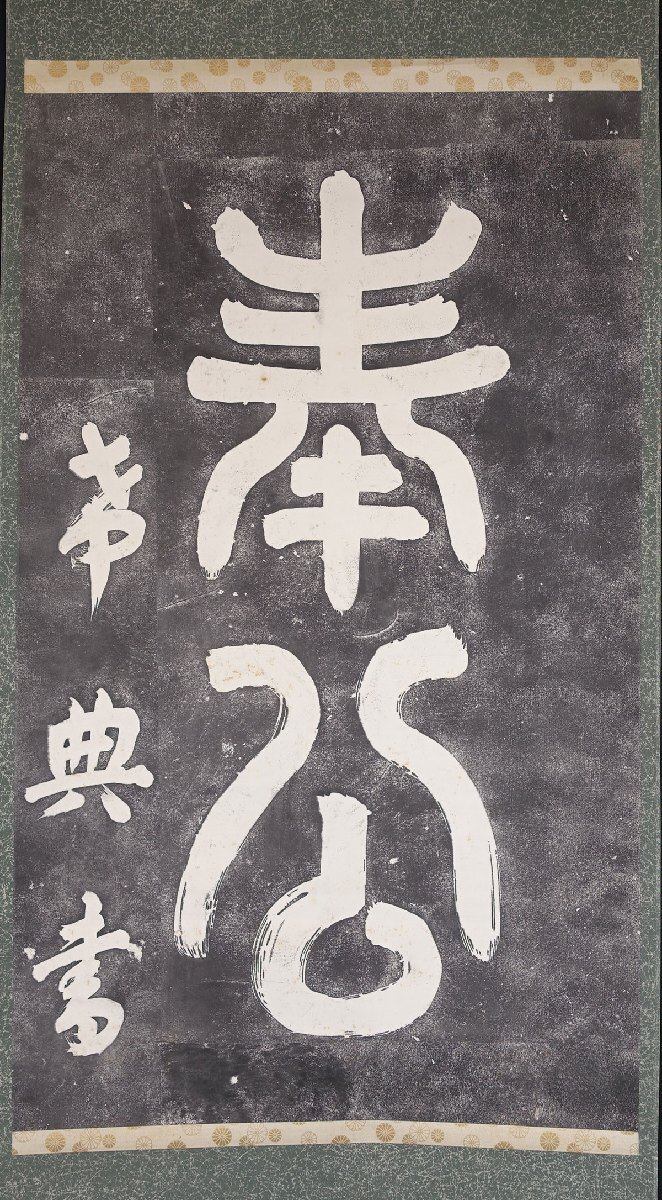 奉公
希典書